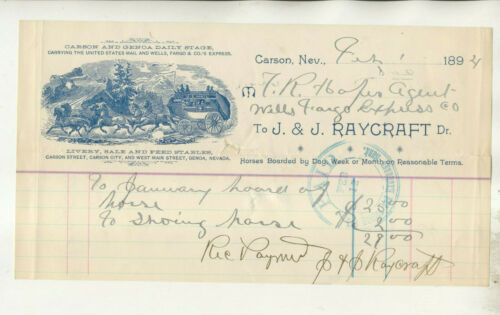 CARSON AND GENOA DAILY STAGE,
CARRYING THE UNITED STATES MAIL AND WELLS, FARGO & CO.'S EXPRESS.
LIVERY, SALE AND FEED STABLES,
CARSON STREET, CARSON CITY, AND WEST MAIN STREET, GENOA, NEVADA.
Carson, Nev., Feb 1 189
M F. R. Agent
Wells Fargo Express Co
To J. & J. RAYCRAFT Dr.
Horses Boarded by Day, Week or Month on Reasonable Terms.
PAID
To January board of
horse $ 26 00
To Shoing horse 2 00
28 00
Rec Payment J & J Raycraft